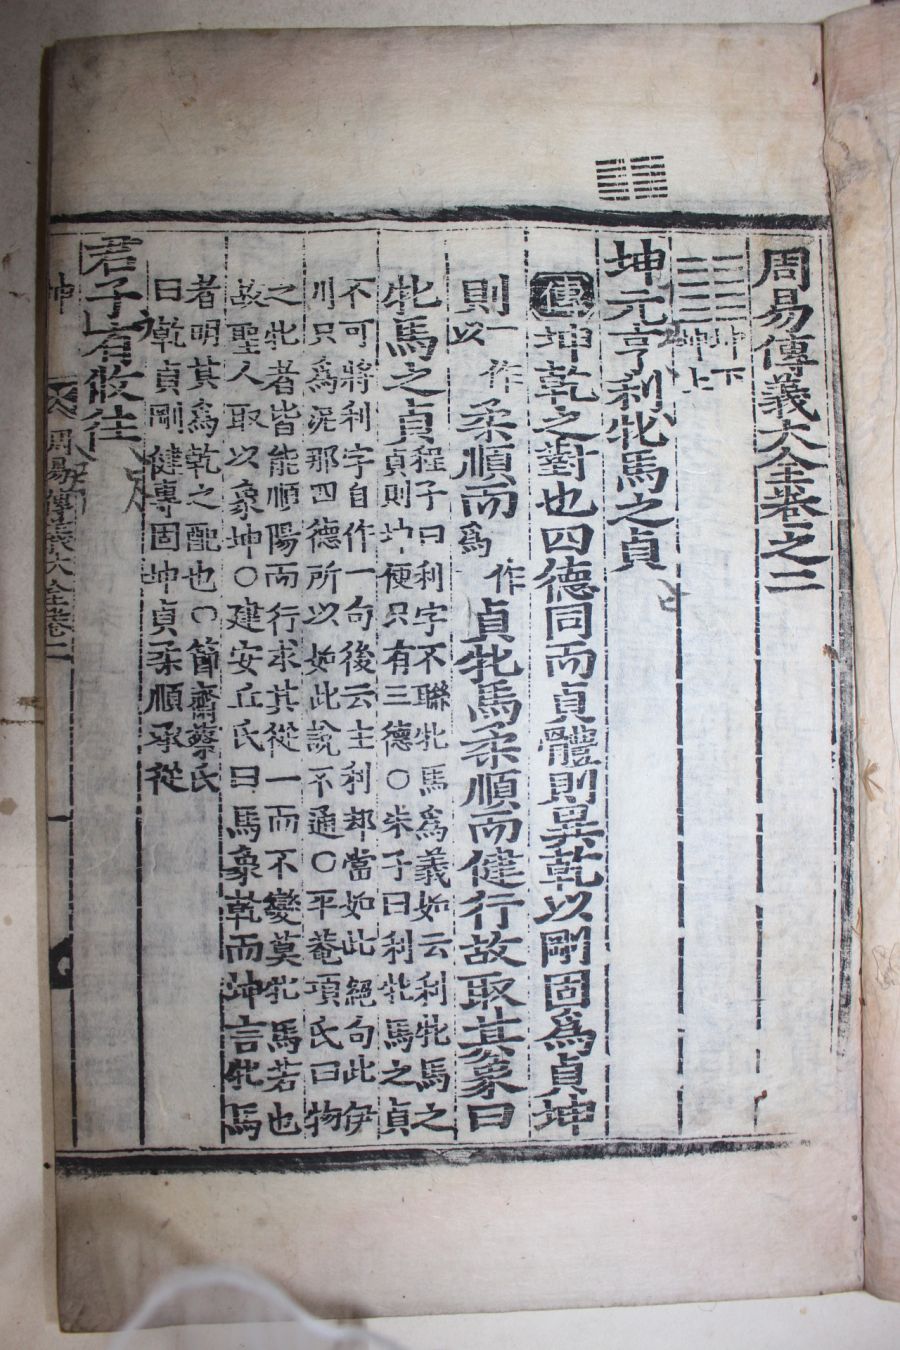 周易傳義大全卷之二
坤下
坤上
坤元亨利牝馬之貞
傳 坤乾之對也四德同而貞體則異乾以剛固爲貞坤
則一作以柔順而一作爲貞牝馬柔順而健行故取其象曰
牝馬之貞程子曰利字不聯牝馬爲義如云利牝馬之
貞則坤便只有三德〇朱子曰利牝馬之貞
不可將利字自作一句後云主利却當如此絕句此伊
川只爲泥那四德所以如此說不通〇平菴項氏曰物
之牝者皆能順陽而行求其從一而不變莫牝馬若也
故聖人取以象坤〇建安丘氏曰馬象乾而坤言牝馬
者明其爲乾之配也〇節齋蔡氏
曰乾貞剛健專固坤貞柔順承從
君子有攸往
坤 周易傳義大全卷二 一